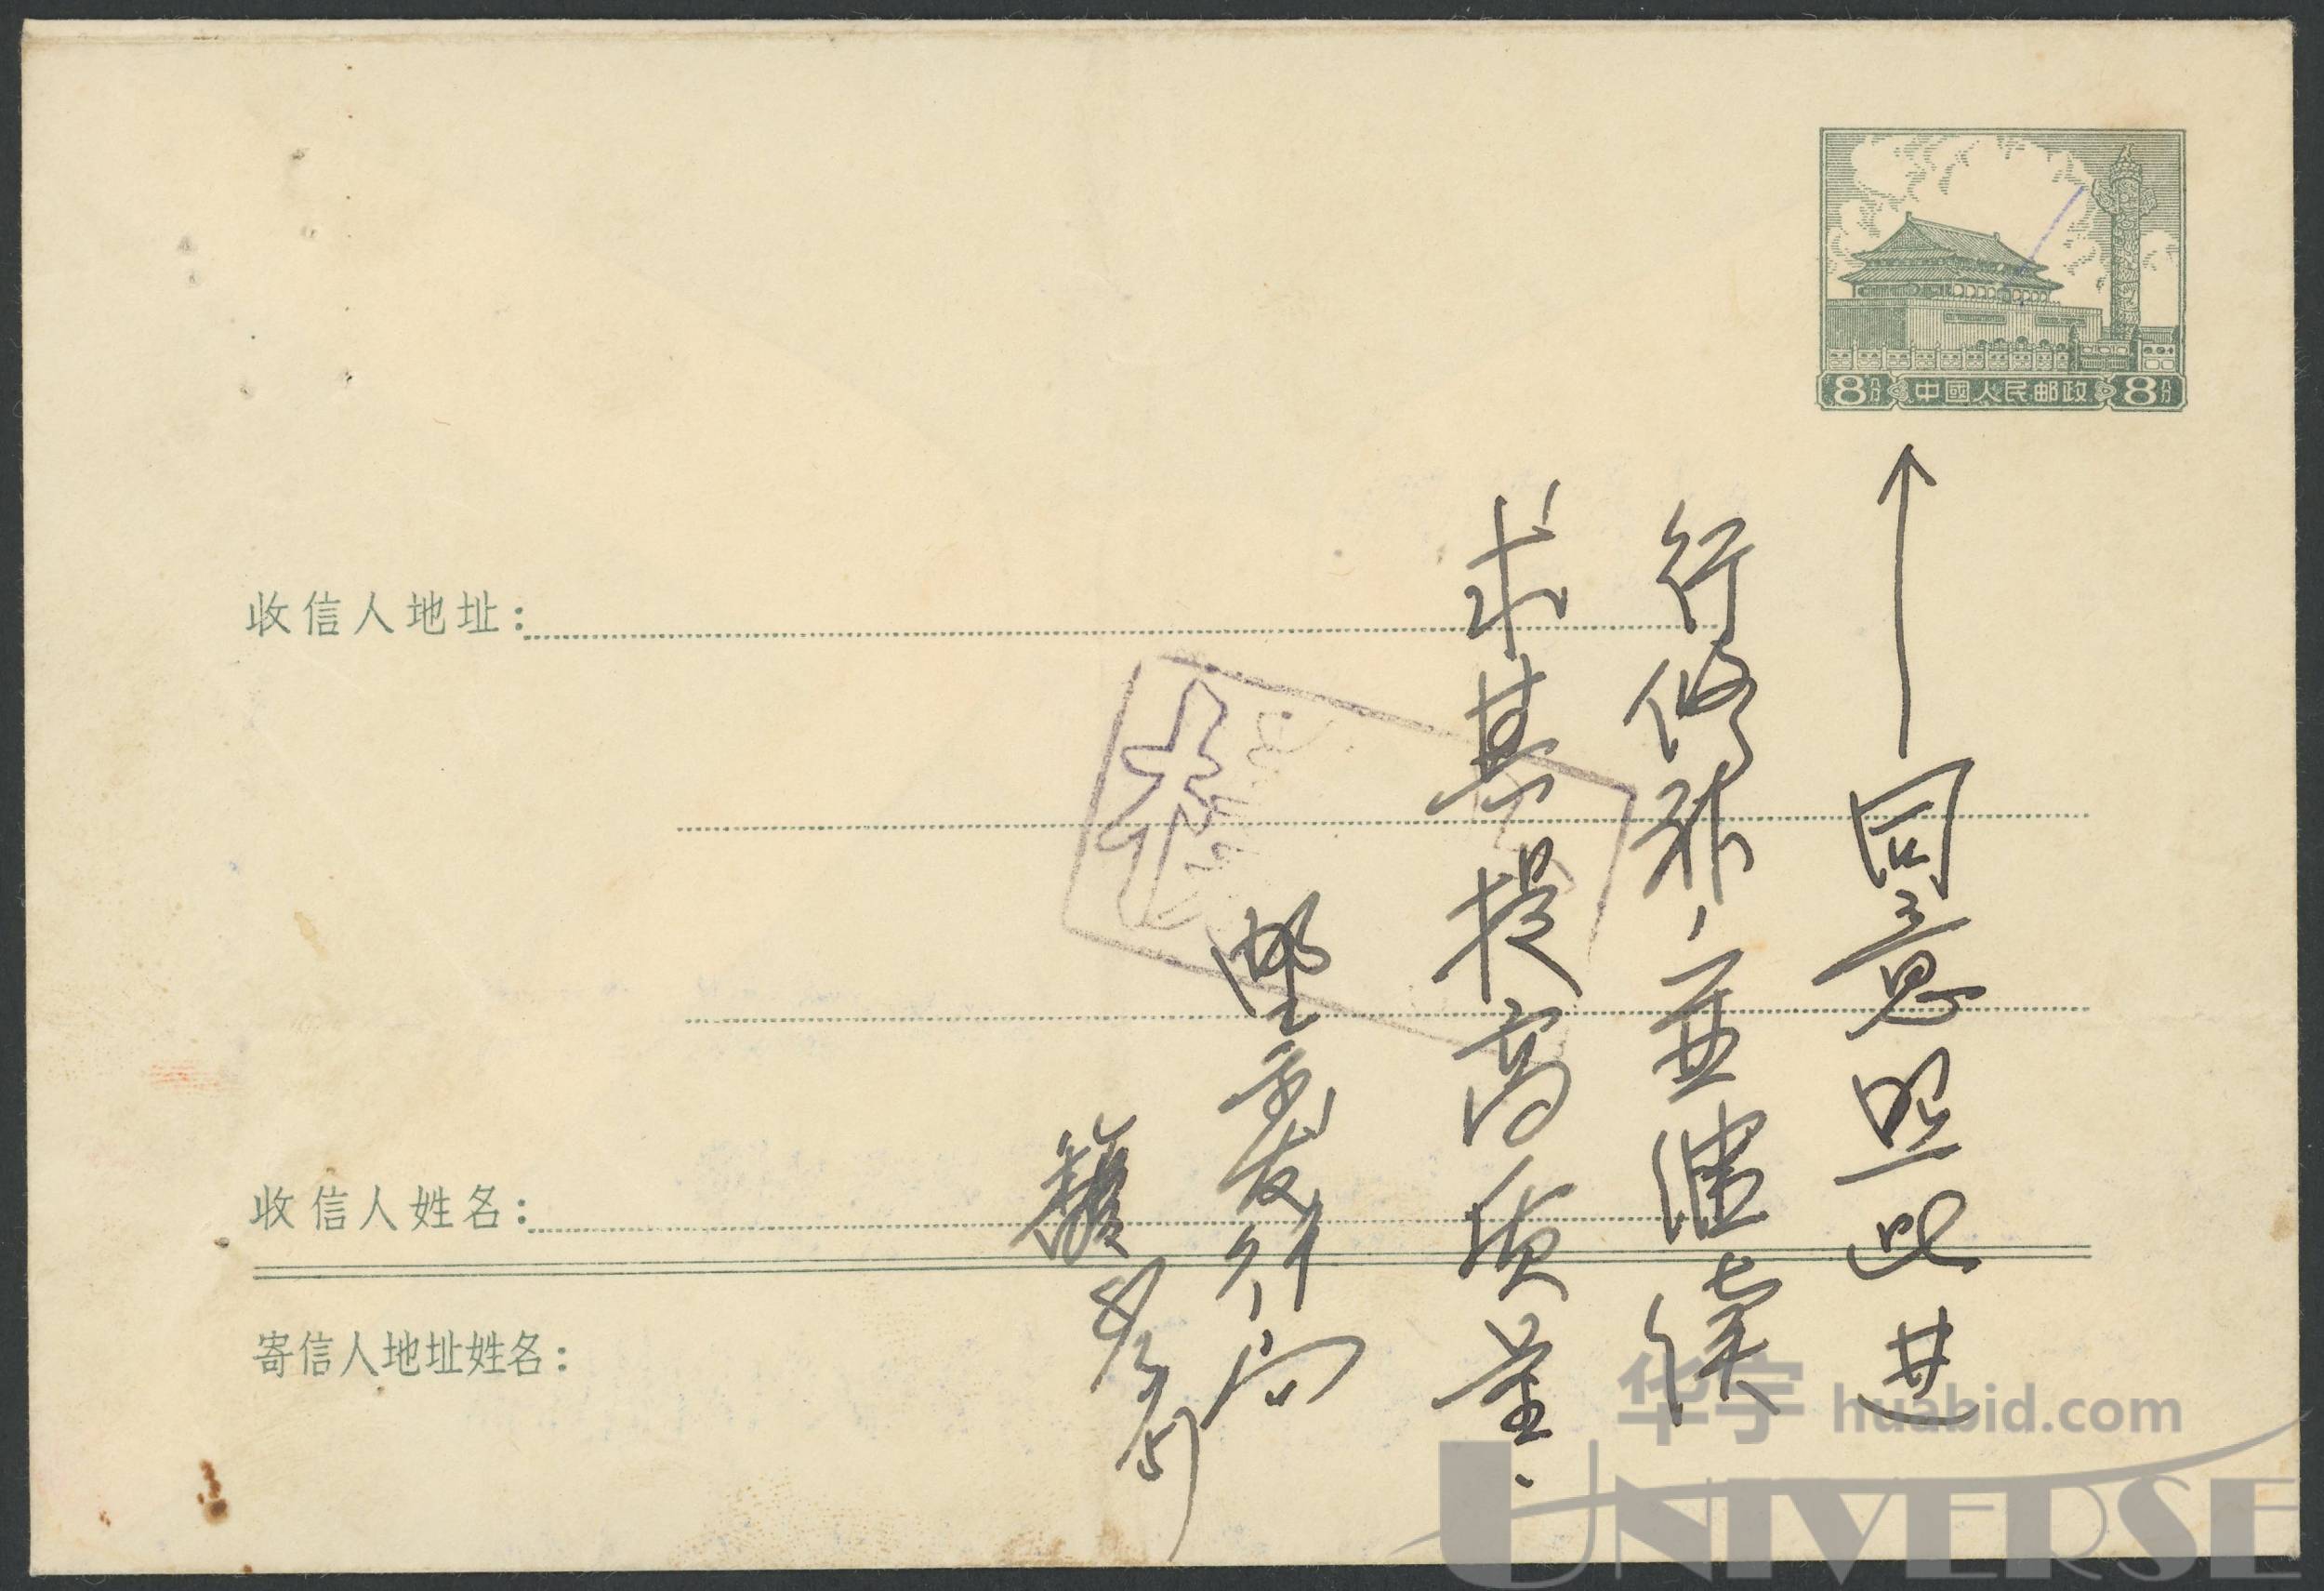 8分 中國人民邮政 8分
收信人地址:
收信人姓名:
寄信人地址姓名:
同意照此进
行修补,并继续
求其提高质量.
邮票发行局
华宇 huabid.com
UNIVERSE